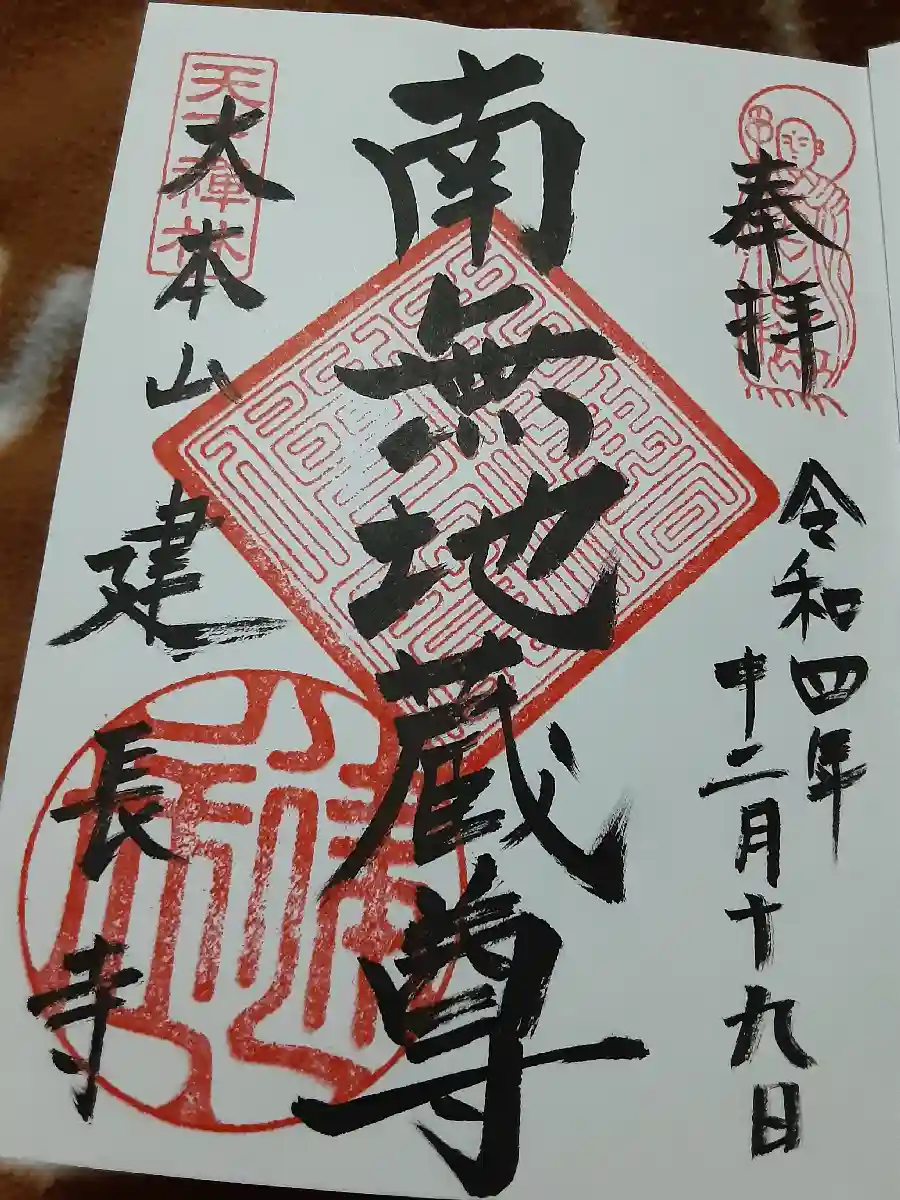 奉拝
令和四年
十二月十九日
南無地蔵尊
天下禅林
大本山
建長寺